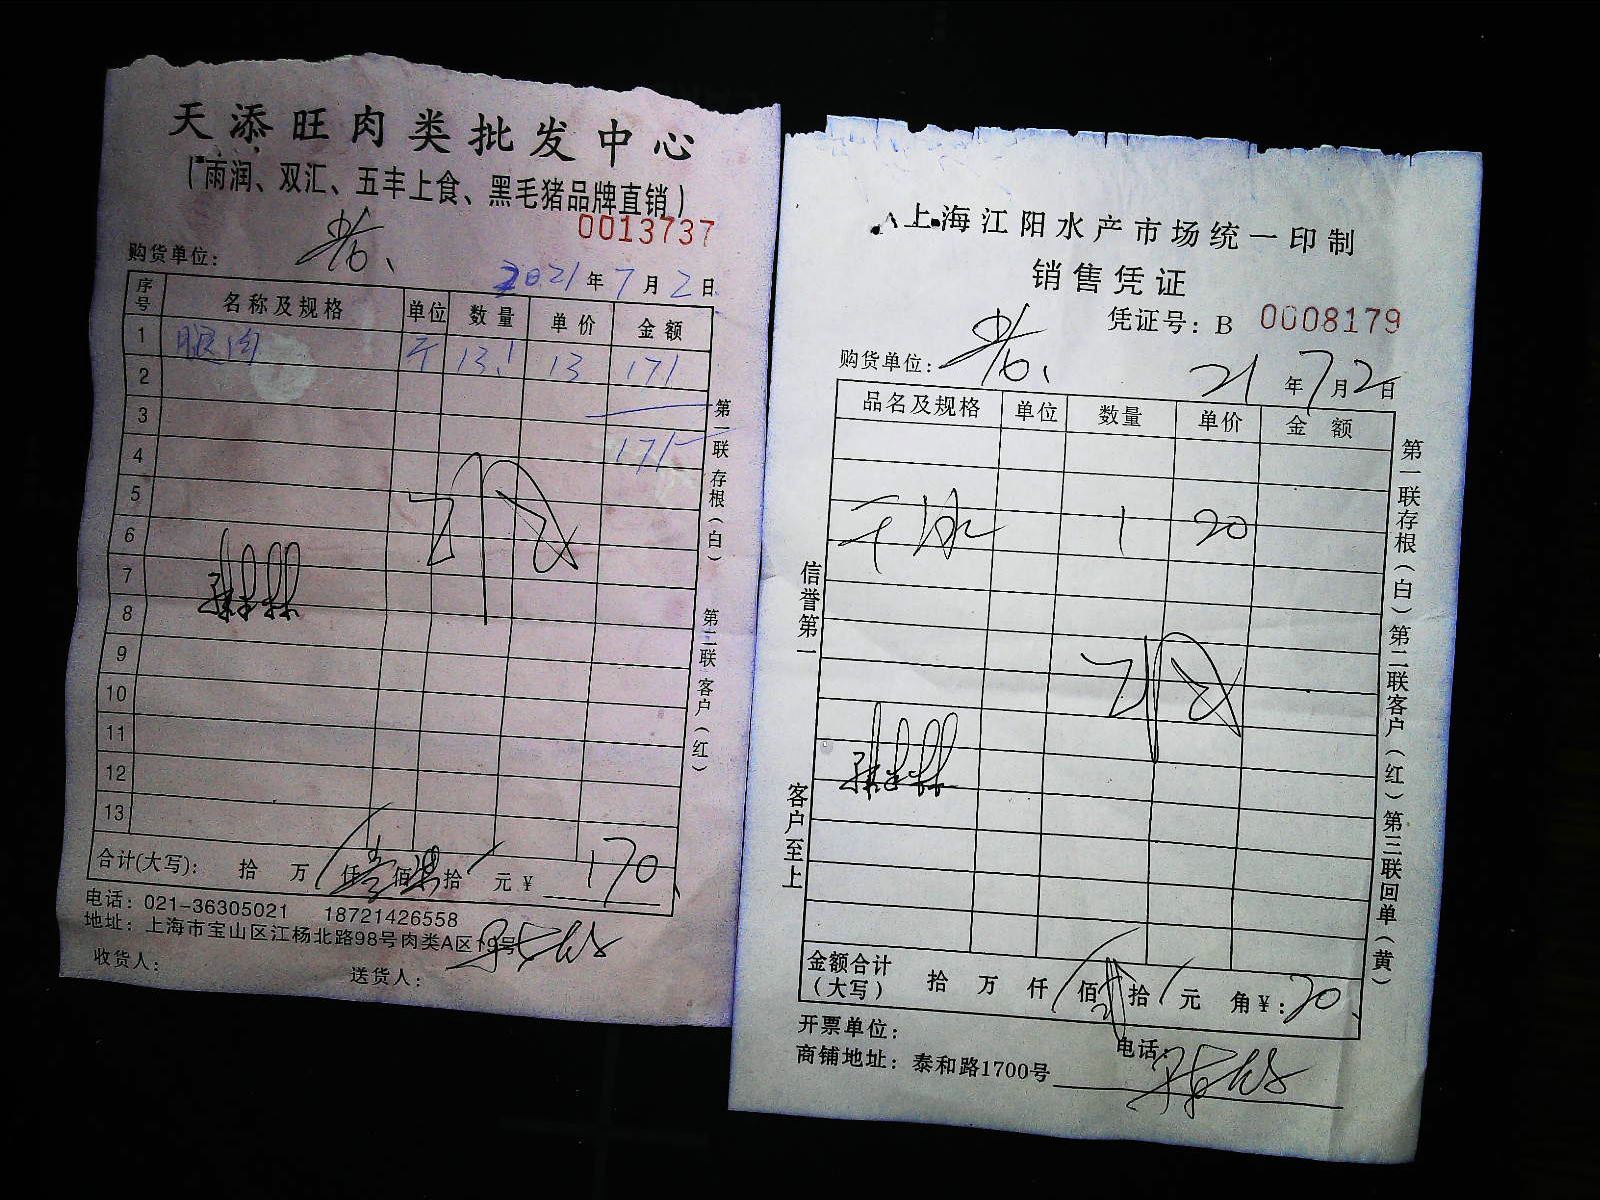 天添旺肉类批发中心
(雨润、双汇、五丰上食、黑毛猪品牌直销)
0013737
购货单位:
2021年7月2日
序号 名称及规格 单位 数量 单价 金额
1 腿肉 斤 13.1 13 171
2
3
4 171
5
6
7
8
9
10
11
12
13
合计(大写): 拾 万 仟 壹 佰 柒 拾 元 ¥ 170
电话: 021-36305021 18721426558
地址: 上海市宝山区江杨北路98号肉类A区19号
收货人: 送货人:
第一联存根(白) 第二联客户(红)
上海江阳水产市场统一印制
销售凭证
凭证号: B 0008179
购货单位:
21年7月2日
品名及规格 单位 数量 单价 金额
干冰 1 20
信誉第一 客户至上
金额合计(大写) 拾 万 仟 佰 贰 拾 元 角 ¥: 20
开票单位: 电话:
商铺地址: 泰和路1700号
第一联存根(白) 第二联客户(红) 第三联回单(黄)